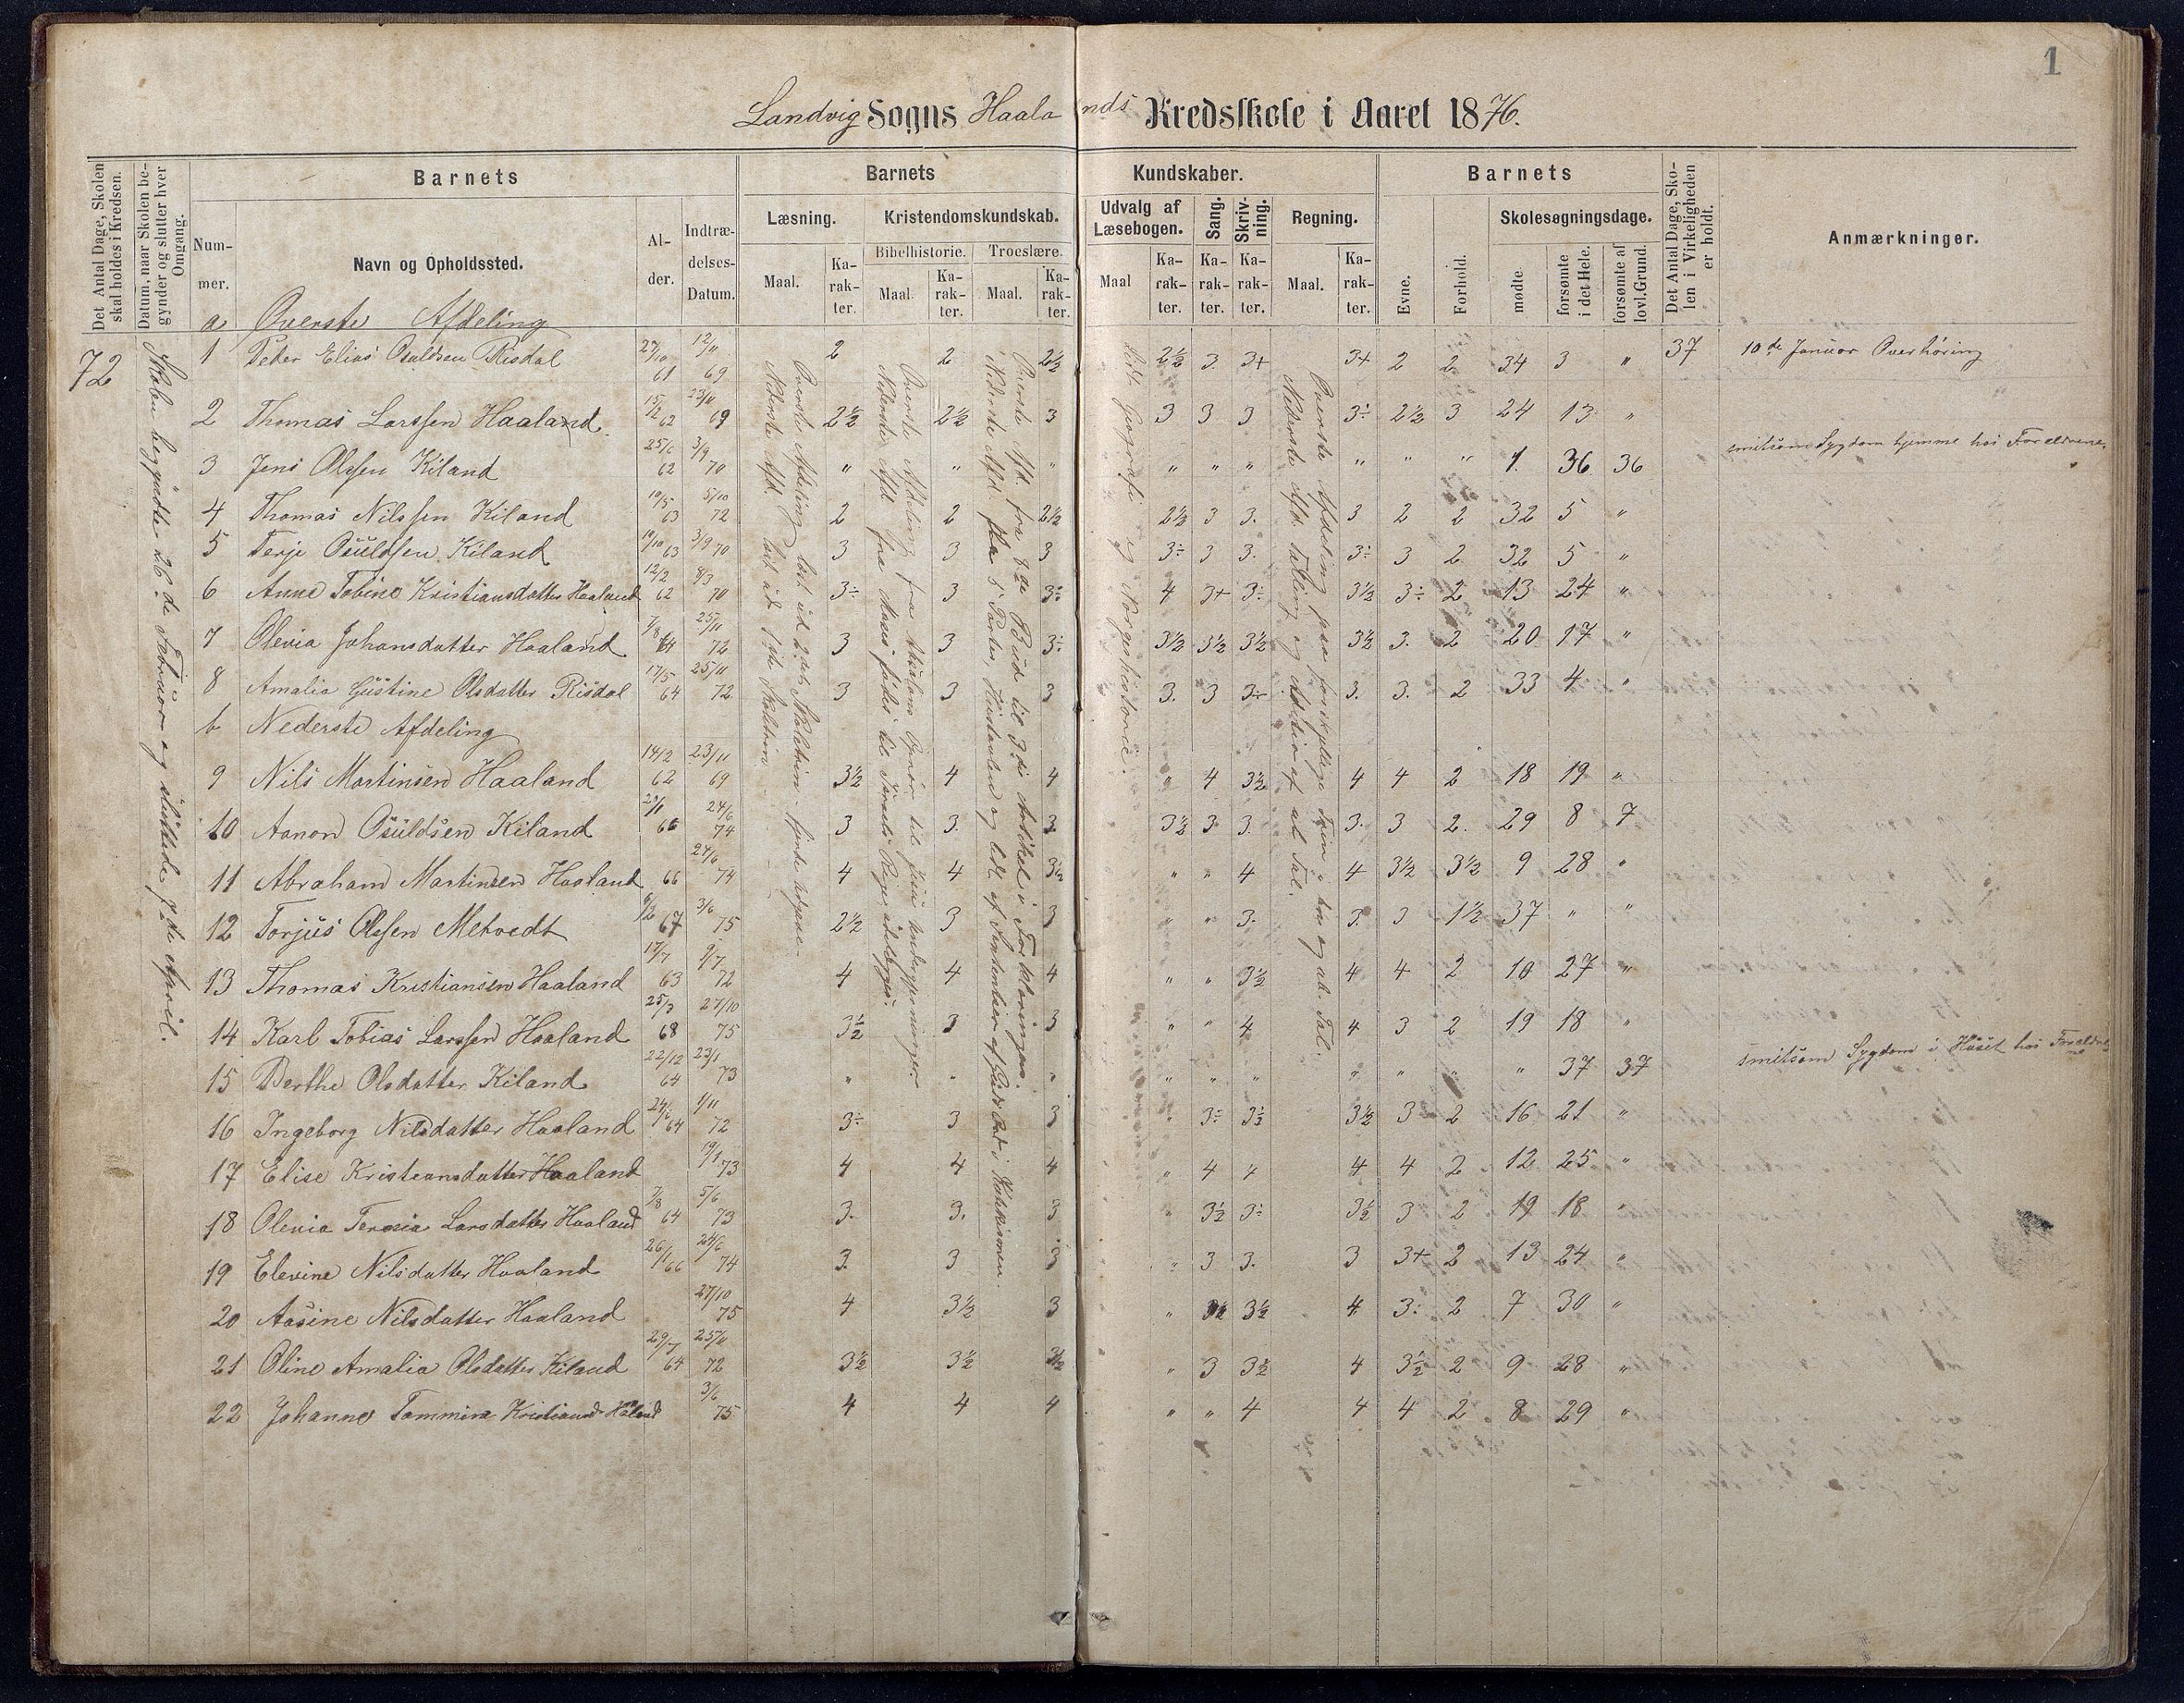 1
Landvig Sogns Haalands Kredsskole i Aaret 1876.
Det Antal Dage, Skolen skal holdes i Kredsen.
Datum, naar Skolen begynder og slutter hver Omgang.
Barnets
Num-
mer.
Navn og Opholdssted.
Al-
der.
Indtræ-
delses-
Datum.
Barnets Kundskaber.
Læsning.
Maal.
Ka-
rak-
ter.
Kristendomskundskab.
Bibelhistorie.
Maal.
Ka-
rak-
ter.
Troeslære.
Maal.
Ka-
rak-
ter.
Udvalg af
Læsebogen.
Maal
Ka-
rak-
ter.
Sang.
Ka-
rak-
ter.
Skriv-
ning.
Ka-
rak-
ter.
Regning.
Maal.
Ka-
rak-
ter.
Barnets
Evne.
Forhold.
Skolesøgningsdage.
mødte
forsømte
i det Hele.
forsømte af
lovl. Grund.
Det Antal Dage, Sko-
len i Virkeligheden
er holdt.
Anmærkninger.
72
Skolen begyndte 26de Februar og sluttede 7de April.
a Øverste Afdeling
1 Peder Elias Osuldsen Risdal 61 12/11 69 2 2 2½ 2½ 3 3+ 3+ 2 2 34 3 " 37 10de Januar Overhøring
2 Thomas Larssen Haaland 62 23/11 69 2½ 2½ 3 3 3 3 3÷ 2½ 3 24 13 "
3 Jens Olssen Kiland 25/6 62 3/9 70 " " " " " " " " " 1. 36 36 smitsom Sygdom hjemme hos Forældrene.
4 Thomas Nilssen Kiland 10/5 63 5/10 72 2 2 2½ 2½ 3 3. 3 2 2 32 5 "
5 Terje Osuldsen Kiland 10/10 63 3/9 70 3 3 3 3÷ 3 3. 3÷ 3 2 32 5 "
6 Anne Tobine Kristiansdatter Haaland 12/2 62 8/3 70 3÷ 3 3÷ 4 3+ 3÷ 3½ 3÷ 2 13 24 "
7 Olevia Johansdatter Haaland 7/8 64 25/11 72 3 3 3÷ 3½ 3½ 3½ 3½ 3. 2 20 17 "
8 Amalia Gustine Olsdatter Risdal 17/5 64 25/11 72 3 3 3 3. 3 3÷ 3. 3. 2 33 4 "
b Nederste Afdeling
9 Nils Martinsen Haaland 14/2 62 23/11 69 3½ 4 4 " 4 3½ 4 4 2 18 19 "
10 Aanon Osuldsen Kiland 66 24/6 74 3 3. 3 3½ 3 3. 3. 3 2. 29 8 7
11 Abraham Martinsen Haaland 66 24/6 74 4 4 " " 4 4 3½ 3½ 9 28 "
12 Torjus Olssen Metvedt 67 3/6 75 2½ 3 3 " " 3. 3. 3 1½ 37 " "
13 Thomas Kristiansen Haaland 17/7 63 9/7 72 4 4 4 " " 3½ 4 4 2 10 27 "
14 Karl Tobias Larssen Haaland 25/3 68 27/10 75 3½ 3 3 " " 4 4 3 2 19 18 "
15 Berthe Olsdatter Kiland 22/12 64 23/1 73 " " " " " " " " " " 37 37 smitsom Sygdom i Huset hos Forældrene
16 Ingeborg Nilsdatter Haaland 24/6 64 1/11 72 3÷ 3 3 " 3÷ 3½ 3½ 3 2 16 21 "
17 Elise Kristeansdatter Haaland 73 4 4 4 " 4 4 4 4 2 12 25 "
18 Olevia Teresia Larsdatter Haaland 7/8 64 5/6 73 3. 3. 3 " 3½ 3÷ 3½ 3 2 19 18 "
19 Elevine Nilsdatter Haaland 66 24/6 74 3. 3 3 " 3 3. 3 3+ 2 13 24 "
20 Aasine Nilsdatter Haaland 27/10 75 4 3½ 3 " 3½ 3½ 4 3÷ 2 7 30 "
21 Oline Amalia Olsdatter Kiland 29/7 64 25/11 72 3½ 3½ 3½ " 3 3½ 4 3½ 2 9 28 "
22 Johanne Tommine Kristiansd. Haaland 3/6 75 4 4 4 " " 4 4 4 2 8 29 "
Lidt Geografi og Norgeshistorie.